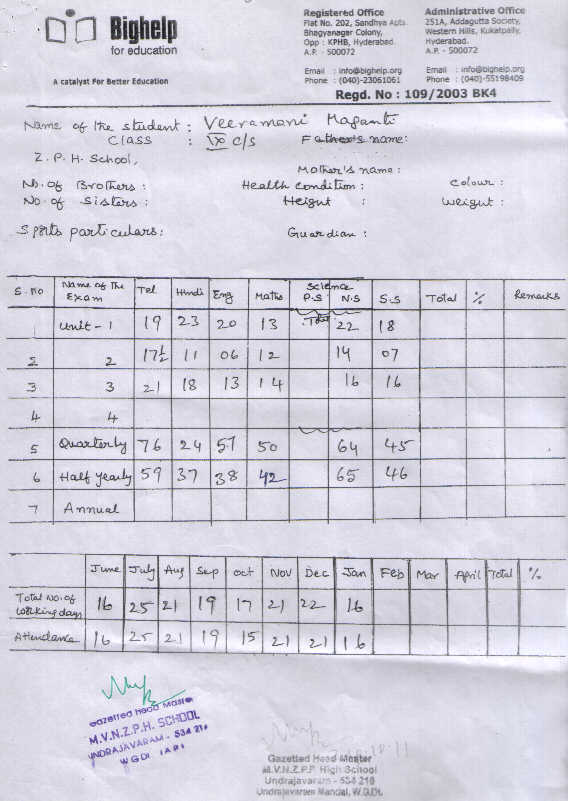 Bighelp
for education
A catalyst For Better Education
Registered Office
Flat No. 202, Sandhya Apts.
Bhagyanagar Colony,
Opp : KPHB, Hyderabad.
A.P. - 500072
Email : info@bighelp.org
Phone : (040)-23061061
Administrative Office
251A, Addagutta Society,
Western Hills, Kukatpally,
Hyderabad.
A.P. - 500072
Email : info@bighelp.org
Phone : (040)-55198409
Regd. No : 109/2003 BK4
Name of the student : Veeramani Maganti
Class : IX c/s Father's name:
Z. P. H. School,
Mother's name :
No. of Brothers : Health condition : Colour :
No. of Sisters : Height : Weight :
Sports particulars: Guardian :
Science
S. no Name of the Exam Tel Hindi Eng Maths P.S N.S S.S Total % Remarks
1 Unit - 1 19 23 20 13 Total 22 18
2 2 17½ 11 06 12 14 07
3 3 21 18 13 14 16 16
4 4
5 Quarterly 76 24 57 50 64 45
6 Half yearly 59 37 38 42 65 46
7 Annual
June July Aug Sep Oct Nov Dec Jan Feb Mar April Total %
Total No. of Working days 16 25 21 19 17 21 22 16
Attendance 16 25 21 19 15 21 21 16
Gazetted Head Master
M.V.N.Z.P.H. SCHOOL
UNDRAJAVARAM - 534 216
Gazetted Head Master
M.V.N.Z.P.P. High School
Undrajavaram - 534 216
Undrajavaram Mandal, W.G.Dt.